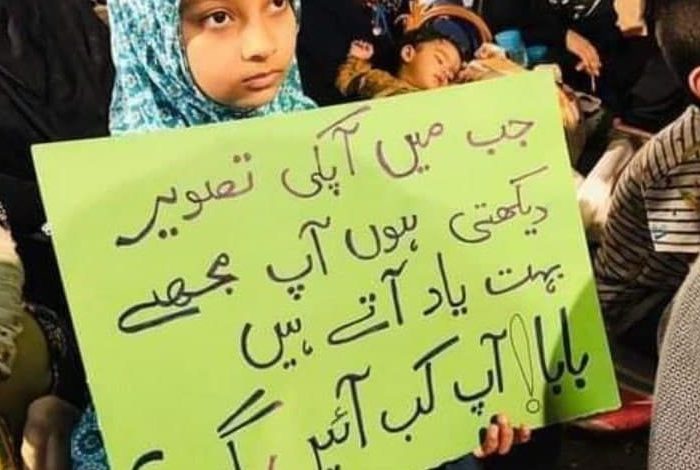 جب میں آپکی تصویر
دیکھتی ہوں آپ مجھے
بہت یاد آتے ہیں
بابا! آپ کب آئیں گے؟